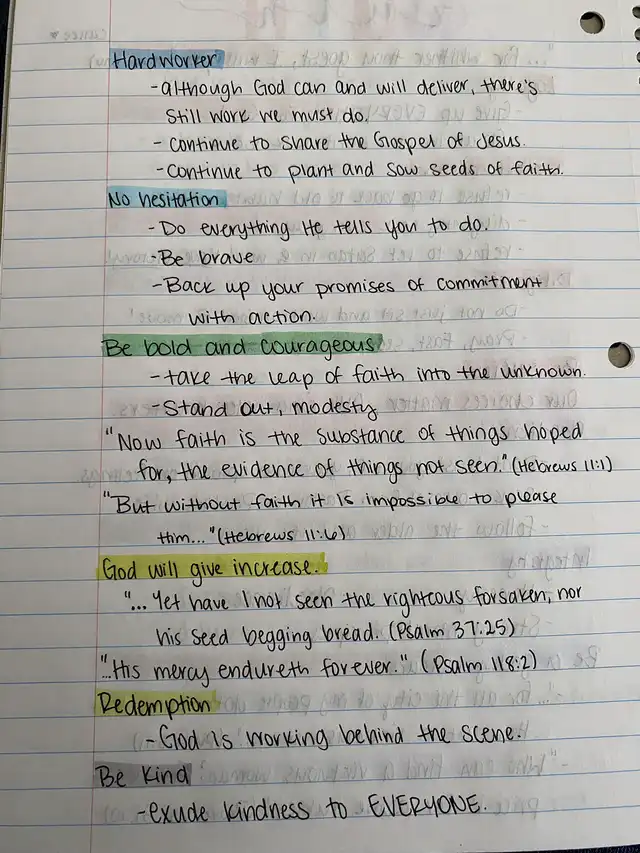 Hardworker
-although God can and will deliver, there's
still work we must do.
- continue to share the Gospel of Jesus.
-continue to plant and sow seeds of faith.
No hesitation
- Do everything He tells you to do.
-Be brave
-Back up your promises of commitment
with action.
Be bold and courageous
-take the leap of faith into the unknown.
-Stand out, modesty
"Now faith is the substance of things hoped
for, the evidence of things not seen." (Hebrews 11:1)
"But without faith it is impossible to please
Him..." (Hebrews 11:6)
God will give increase.
"... yet have I not seen the righteous forsaken, nor
his seed begging bread. (Psalm 37:25)
"..His mercy endureth forever." (Psalm 118:2)
Redemption
-God is working behind the scene.
Be kind
-exude kindness to EVERYONE.